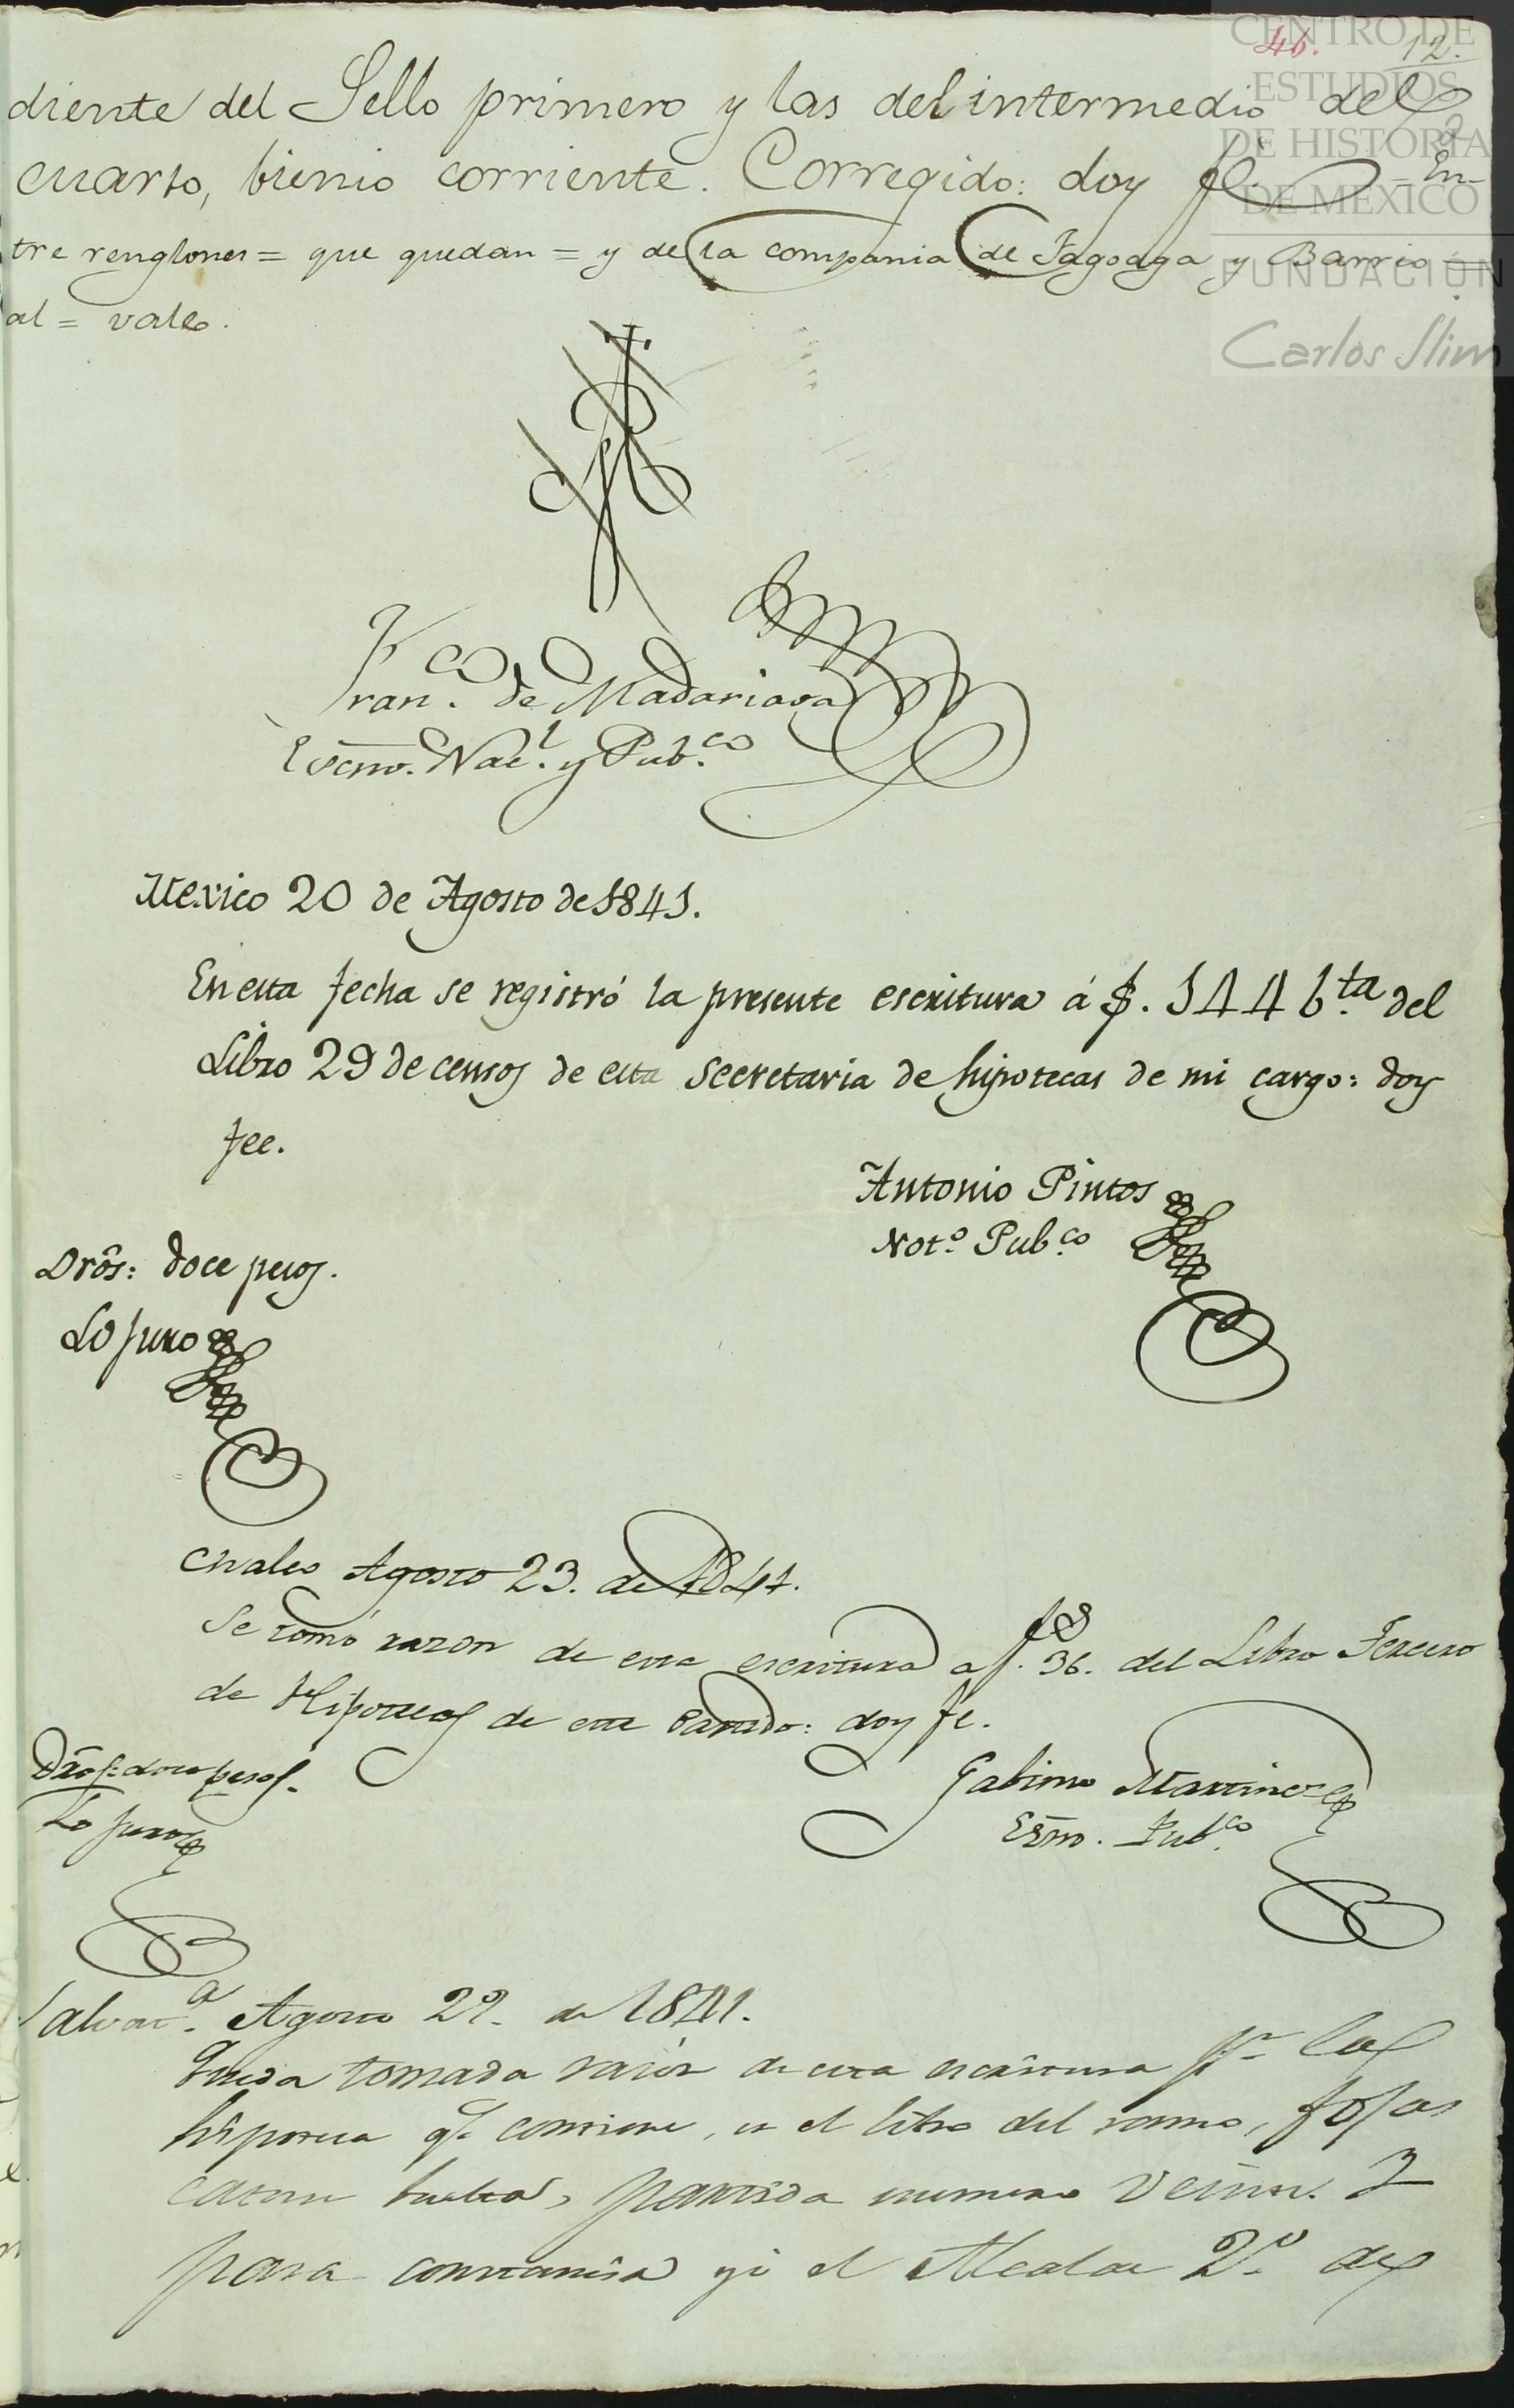 46. 12.
CENTRO DE
ESTUDIOS
DE HISTORIA
DE MEXICO
FUNDACIÓN
Carlos Slim
diente del Sello primero y las del intermedio del
cuarto, bienio corriente. Corregido: doy fé. En-
tre renglones = que quedan = y de la compania de Fagoaga y Barrio =
al = vale.
Fran.co de Madariaga
Escno. Nac.l y Pub.co
Mexico 20 de Agosto de 1841.
En esta fecha se registró la presente escritura á f. 144 bta. del
Libro 29 de censos de esta Secretaria de hipotecas de mi cargo: doy
fee.
Antonio Pintos
Not.o Pub.co
Drôs: doce pesos.
Lo juro
Chalco Agosto 23. de 1841.
Se tomó razon de esta escritura a fs. 36. del Libro Tercero
de Hipotecas de este Partido: doy fe.
Gabino Martinez
Esno. Pub.co
Dros: doce pesos.
Lo juro
Agosto 29. de 1841.
Queda tomada razón de esta escritura pr. la
hipoteca qe. contiene, en el libro del ramo, fojas
catorce buelta, partida numero veinte. Y
para constancia yo el Alcalde 2.o de